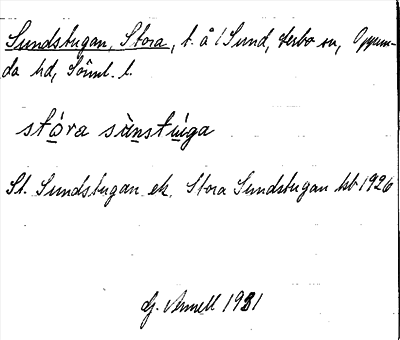 Sundstugan, Stora, t. å 1 Sund, Lerbo sn, Oppun-
da hd, Söml. l.
stóra sùnstùga
St. Sundstugan ek. Stora Sundstugan tsb 1926
G. 1931